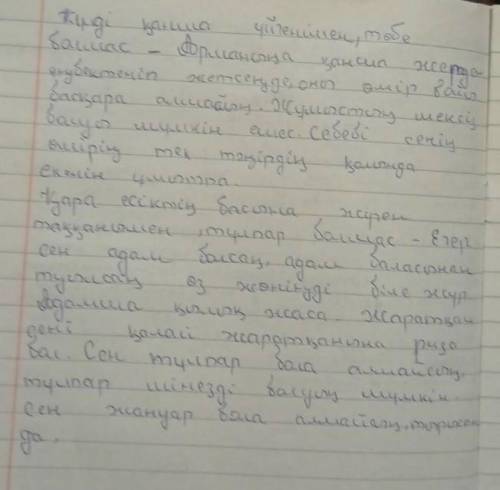 Күлді қанша үйгенімен, төбе
болмас – Арманыңа қанша жерде
еңбектеніп жетсеңде, оны өмір бойы
басқара алмайсың. Жұмыстың шексіз
болуы мүмкін емес. Себебі сенің
өмірің тек тәңірдің қолында
екенін ұмытпа.
Қара есектің басына жүген
таққанымен, тұлпар болмас – Егер
сен адам болсаң, адам баласынан
туылсаң өз жөніңді біле жүр
Адамша қылық жаса. Жаратқан
сені қалай жаратқанына риза
бол. Сен тұлпар бола алмайсың,
тұлпар мінезді болуың мүмкін.
Сен жануар бола алмайсың,
да.